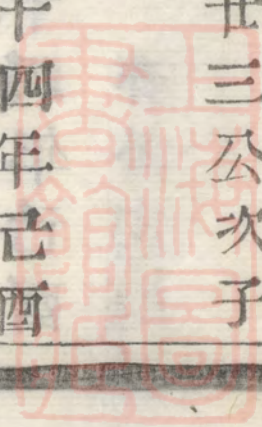 廿三公次子
十四年己酉
上海圖書館藏